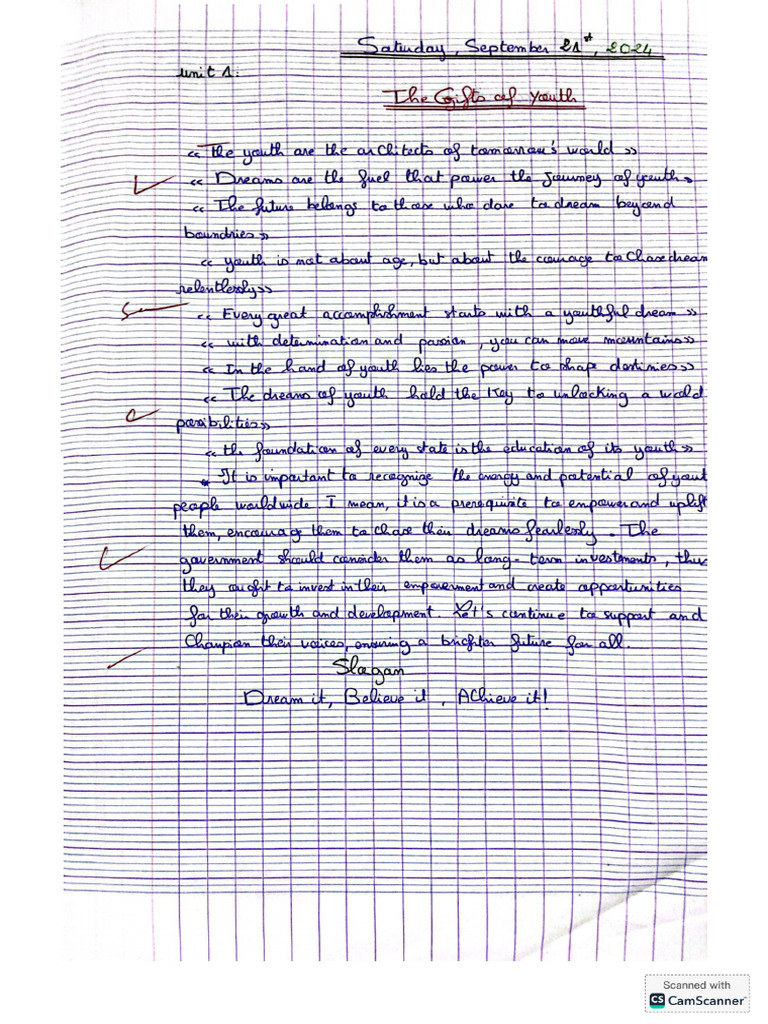 Saturday, September 21st, 2024
unit 1:
The Gifts of Youth
« The youth are the architects of tomorrow's world »
« Dreams are the fuel that power the journey of youth»
« The future belongs to those who dare to dream beyond
boundries »
« youth is not about age, but about the courage to chase dream
relentlessly»
« Every great accomplishment starts with a youthful dream »
« with determination and passion, you can move mountains»
« In the hand of youth lies the power to shape destinies»
« The dreams of youth hold the key to unlocking a world
possibilities»
« the foundation of every state is the education of its youth»
It is important to recognize the energy and potential of
people worldwide. I mean, it is a prerequisite to empower and uplift
them, encourage them to chase their dreams fearlessly. The
government should consider them as long-term investments, thus
they ought to invest in their empowerment and create opportunities
for their growth and development. Let's continue to support and
Champion their voices, ensuring a brighter future for all.
Slogan
Dream it, Believe it, Achieve it!
Scanned with
CS CamScanner